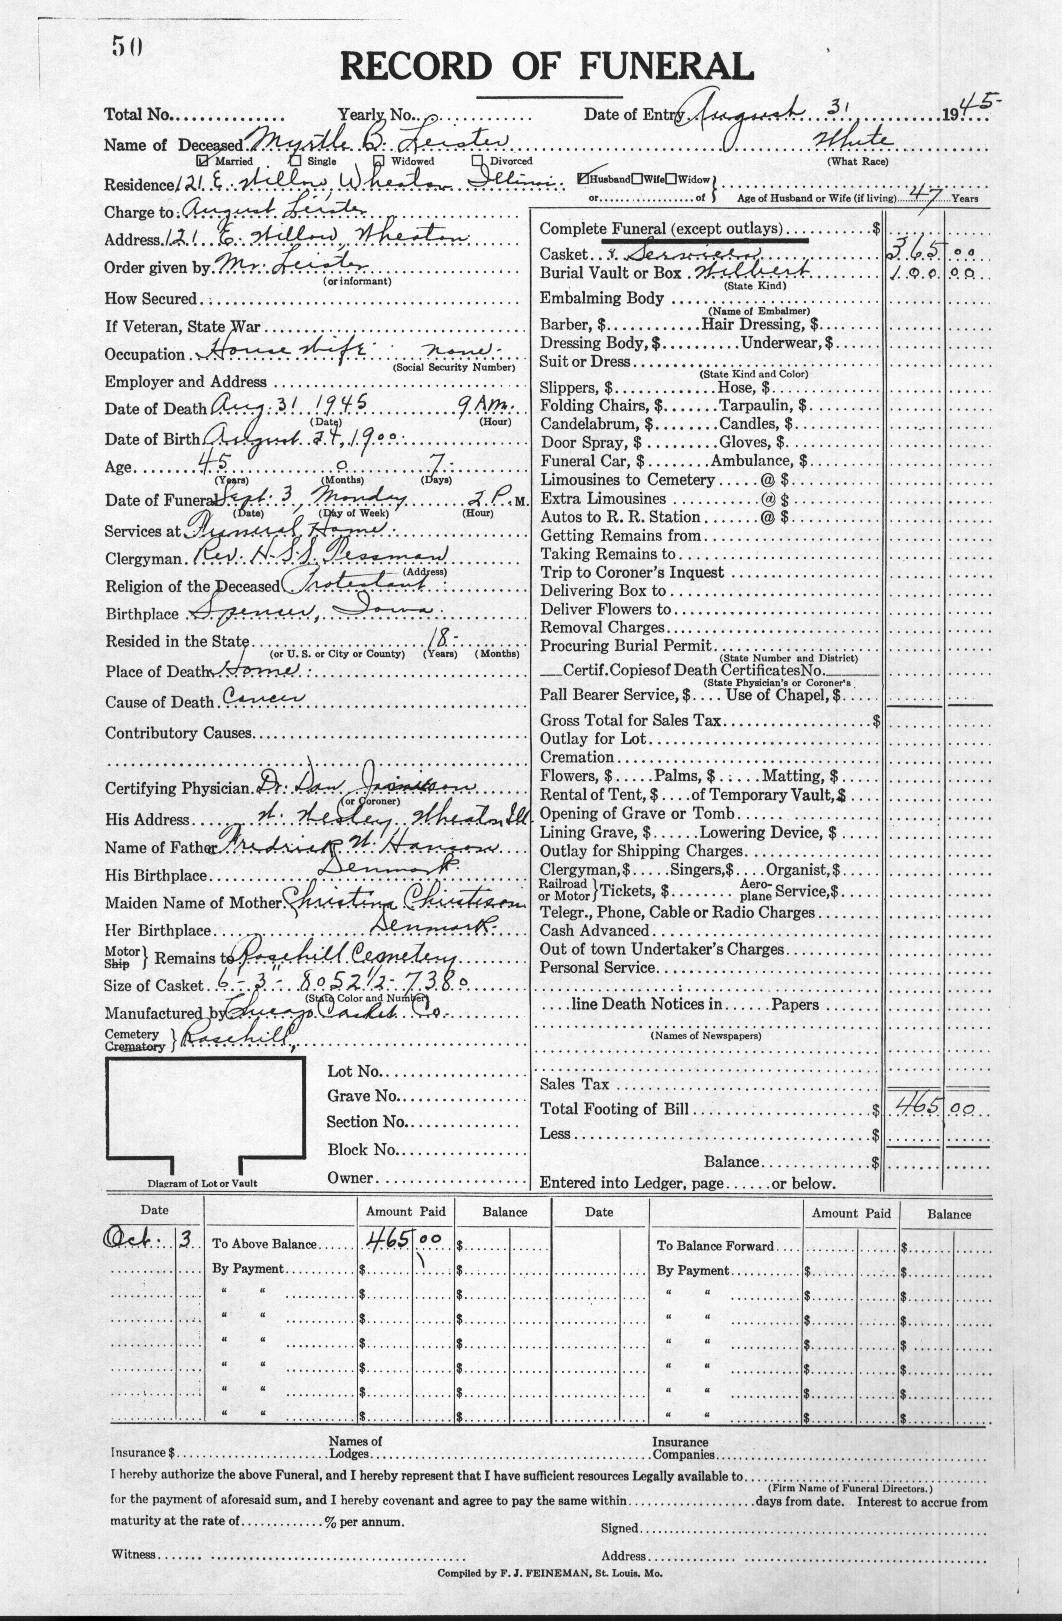 50
RECORD OF FUNERAL
Total No............... Yearly No............... Date of Entry August 31 1945
Name of Deceased Myrtle B. Leister White
Married Single Widowed Divorced (What Race)
Residence 121 E. Willow, Wheaton Illinois. Husband Wife Widow
or..................of Age of Husband or Wife (if living)....47....Years
Charge to: August Leister
Address. 121 E. Willow, Wheaton
Order given by Mr. Leister
(or informant)
How Secured
If Veteran, State War
Occupation House Wife none.
(Social Security Number)
Employer and Address
Date of Death Aug. 31 1945 9 A.M.
(Date) (Hour)
Date of Birth August 24, 1900.
Age 45 0 7
(Years) (Months) (Days)
Date of Funeral Sept. 3, Monday 2 P.M.
(Date) (Day of Week) (Hour)
Services at Funeral Home.
Clergyman. Rev. H.S.S. Pessman
(Address)
Religion of the Deceased Protestant
Birthplace Spencer, Iowa.
Resided in the State 18
(or U. S. or City or County) (Years) (Months)
Place of Death Home
Cause of Death. Cancer
Contributory Causes
Certifying Physician. Dr. Dan
(or Coroner)
His Address W. Wesley Wheaton Ill.
Name of Father Fredrick W. Hanson
His Birthplace Denmark.
Maiden Name of Mother. Christina
Her Birthplace Denmark.
Motor
Ship } Remains to Rosehill Cemetery
Size of Casket 6-3" - 8052½ - 7380
(State Color and Number)
Manufactured by Chicago Casket Co.
Cemetery
Crematory } Rosehill,
Lot No.
Grave No.
Section No.
Block No.
Owner
Diagram of Lot or Vault
Complete Funeral (except outlays)..........$
Casket & Services 365 00
Burial Vault or Box Wilbert 100 00
(State Kind)
Embalming Body
(Name of Embalmer)
Barber, $............Hair Dressing, $
Dressing Body, $..........Underwear, $
Suit or Dress
(State Kind and Color)
Slippers, $............Hose, $
Folding Chairs, $.......Tarpaulin, $
Candelabrum, $........Candles, $
Door Spray, $.........Gloves, $
Funeral Car, $........Ambulance, $
Limousines to Cemetery.....@ $
Extra Limousines...........@ $
Autos to R. R. Station.......@ $
Getting Remains from
Taking Remains to
Trip to Coroner's Inquest
Delivering Box to
Deliver Flowers to
Removal Charges
Procuring Burial Permit
(State Number and District)
___Certif. Copies of Death Certificates No.
(State Physician's or Coroner's
Pall Bearer Service, $....Use of Chapel, $
Gross Total for Sales Tax....................$
Outlay for Lot
Cremation
Flowers, $.....Palms, $.....Matting, $
Rental of Tent, $....of Temporary Vault, $
Opening of Grave or Tomb
Lining Grave, $......Lowering Device, $
Outlay for Shipping Charges
Clergyman, $.....Singers, $....Organist, $
Railroad
or Motor } Tickets, $........ Aero-
plane Service, $
Telegr., Phone, Cable or Radio Charges
Cash Advanced
Out of town Undertaker's Charges
Personal Service
....line Death Notices in......Papers
(Names of Newspapers)
Sales Tax
Total Footing of Bill........................$ 465 00
Less........................................$
Balance...............$
Entered into Ledger, page......or below.
Date Amount Paid Balance Date Amount Paid Balance
Oct. 3 To Above Balance 465 00 $ To Balance Forward $
By Payment $ $ By Payment $ $
" " $ $ " " $ $
" " $ $ " " $ $
" " $ $ " " $ $
" " $ $ " " $ $
" " $ $ " " $ $
" " $ $ " " $ $
Insurance $ Names of
Lodges Insurance
Companies
I hereby authorize the above Funeral, and I hereby represent that I have sufficient resources Legally available to
(Firm Name of Funeral Directors.)
for the payment of aforesaid sum, and I hereby covenant and agree to pay the same within...................days from date. Interest to accrue from
maturity at the rate of............% per annum.
Signed
Witness Address
Compiled by F. J. FEINEMAN, St. Louis, Mo.